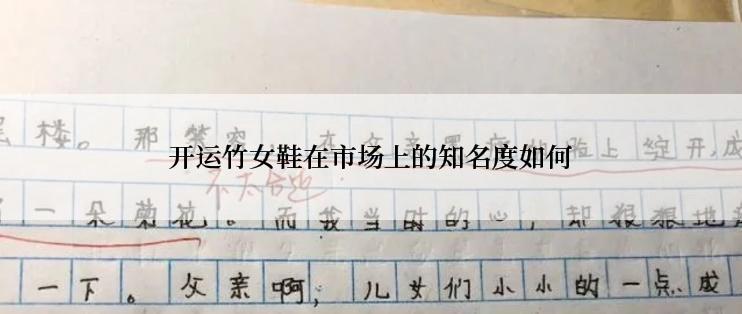 楼。那笑容，在父亲黑瘦的脸上绽开,成
开运竹女鞋在市场上的知名度如何
不太合适
一朵菊花。而我当时的心，却狠狠地
一下。父亲啊，儿女们小小的一点成